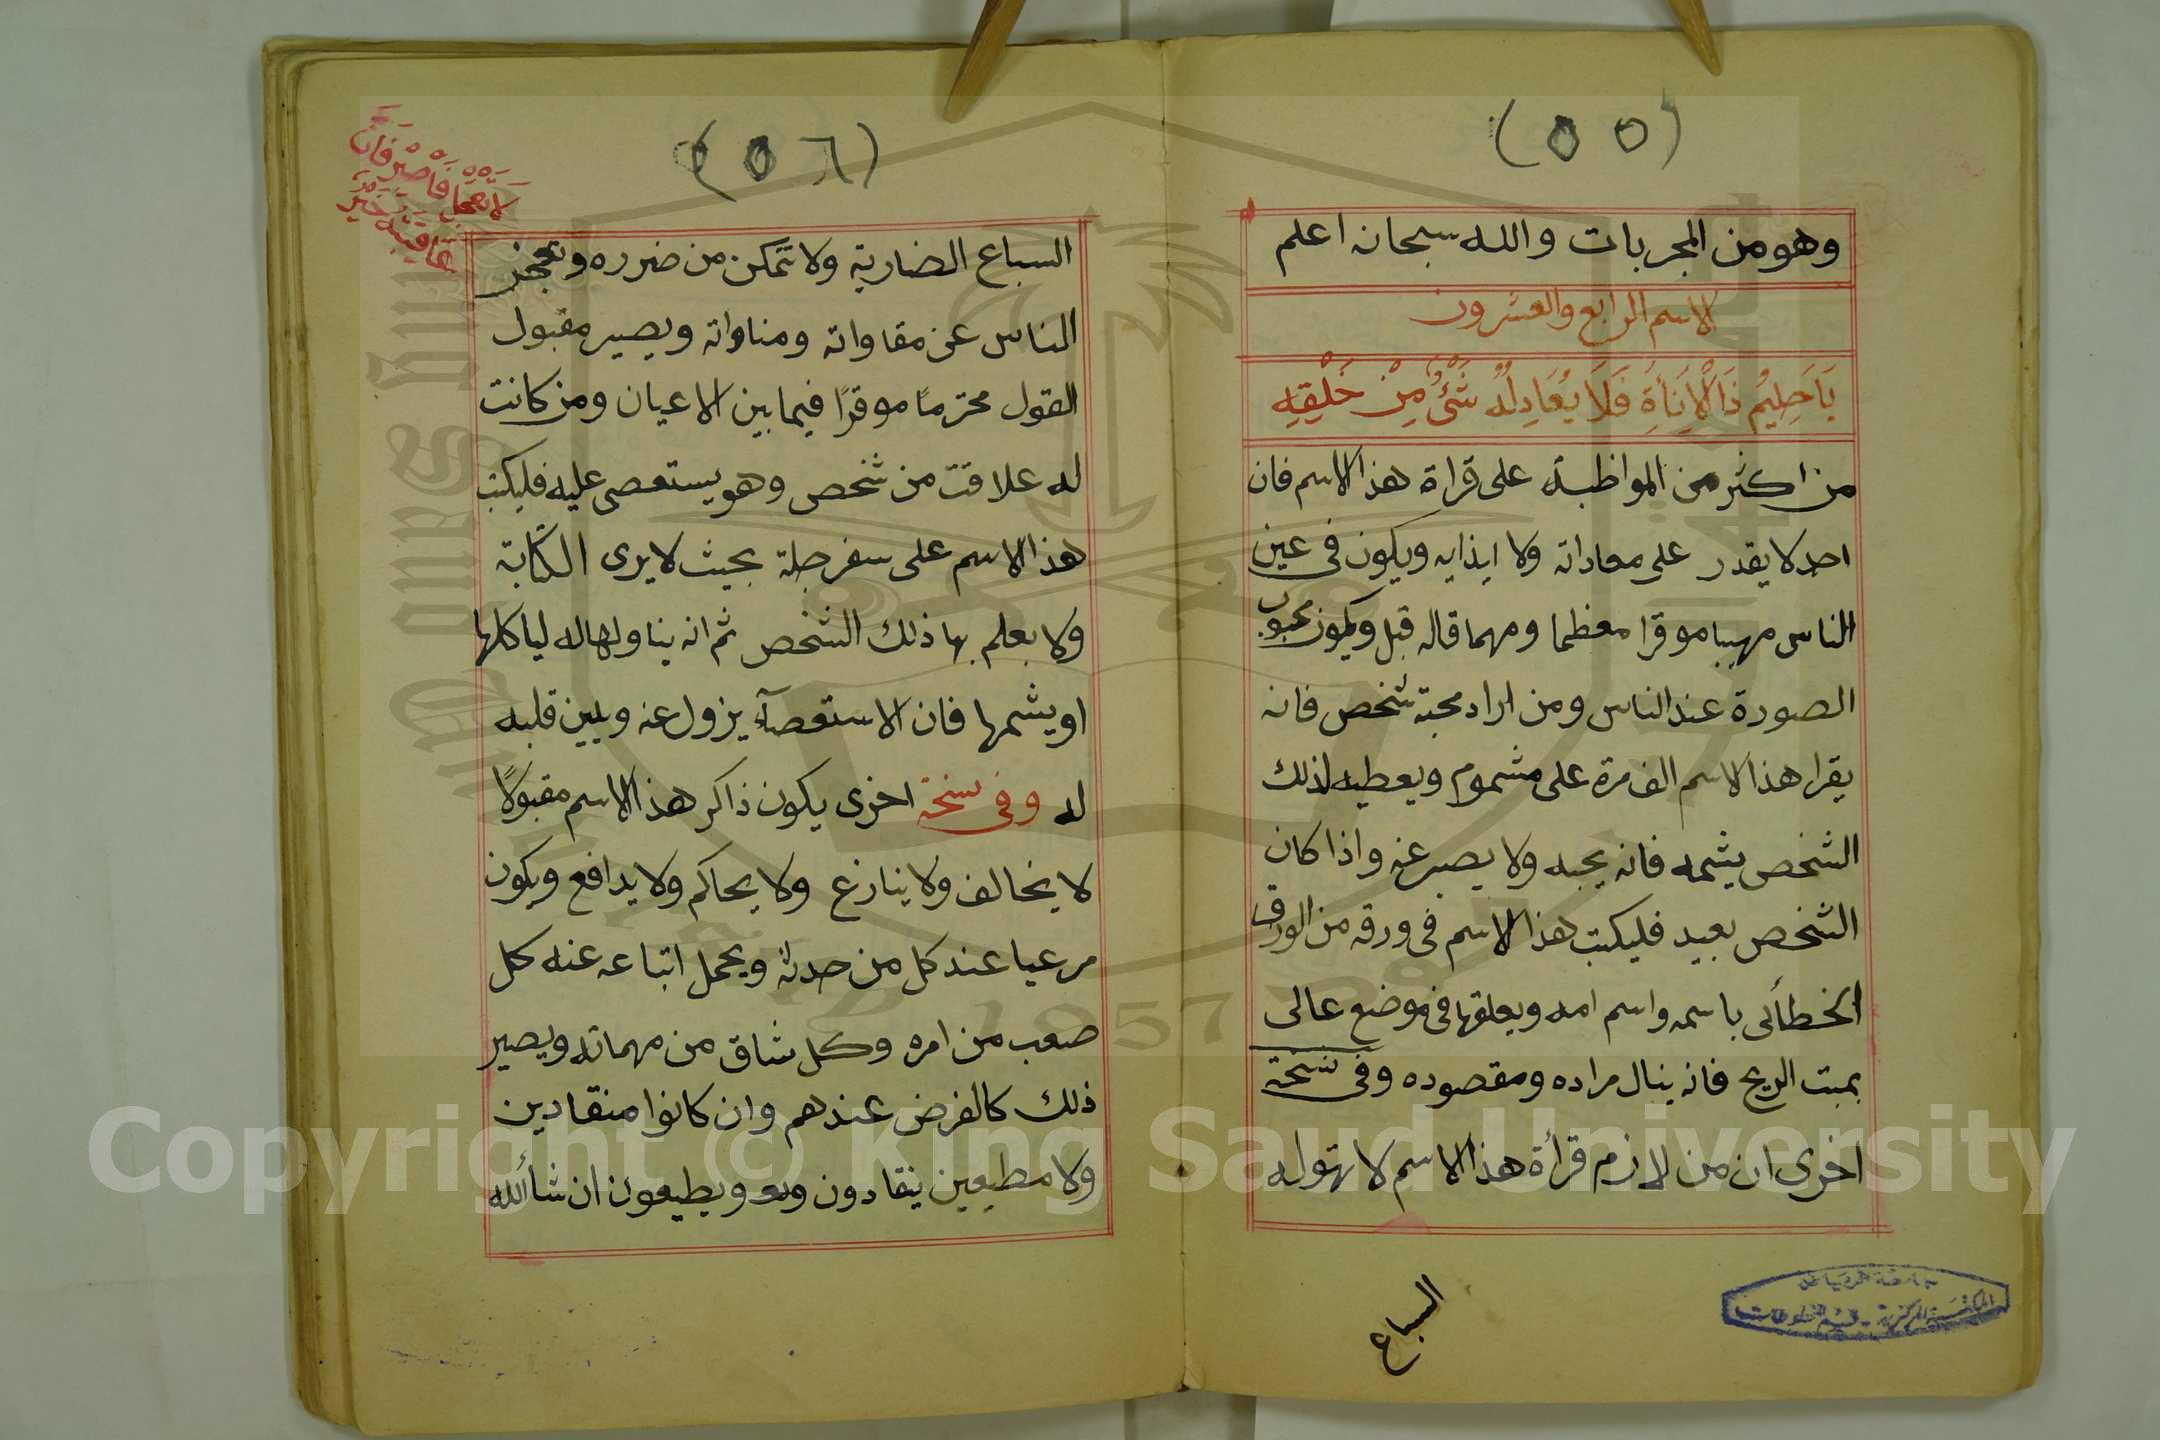 (٥٥)
وهو من المجربات والله سبحانه اعلم
الاسم الرابع والعشرون
يَاحَلِيمُ ذَاالْاَنَاةِ فَلَا يُعَادِلُهُ شَئٌ مِنْ خَلْقِهِ
من اكثر من المواظبة على قراة هذا الاسم فان
احد لا يقدر على معاداته ولا ايذايه ويكون فى عين
الناس مهيبا موقرا معظما ومهما قاله قبل ويكون محبوب
الصورة عند الناس ومن اراد محبة شخص فانه
يقرا هذا الاسم الف مرة على مشموم ويعطيه لذلك
الشخص يشمه فانه يحبه ولا يصبر عنه واذا كان
الشخص بعيد فليكتب هذا الاسم فى ورقه من الورق
الخطائى باسمه واسم امه ويعلقها فى موضع عالى
بمبت الريح فانه ينال مراده ومقصوده وفى نسخة
اخرى ان من لازم قرأة هذا الاسم لا تهوله
السباع
(٥٦)
لَا تَعْجَلْ فَاصْبِرْ فَاِنَّ
عَاقِبَتَهُ خَيْرٌ
السباع الضارية ولا تتمكن من ضرره وتعجز
الناس عن مقاواته ومناواته ويصير مقبول
القول محترمًا موقرًا فيما بين الاعيان ومن كانت
له علاقت من شخص وهو يستعصى عليه فليكتب
هذا الاسم على سفرجلة بحيث لا يرى الكتابة
ولا يعلم بها ذلك الشخص ثم انه يناولها له لياكلها
او يشمها فان الاستعصآء يزول عنه ويلين قلبه
له وفى نسخة اخرى يكون ذاكر هذا الاسم مقبولًا
لا يخالف ولا ينازع ولا يحاكم ولا يدافع ويكون
مرعيا عند كل من حدثه ويحمل اتباعه عنه كل
صعب من امره وكل شاق من مهماته ويصير
ذلك كالفرض عندهم وان كانوا منقادين
ولا مطيعين ينقادون ويطيعون ان شأ الله
جامعة الرياض
المكتبة المركزية - قسم المخطوطات
Copyright © King Saud University
1957